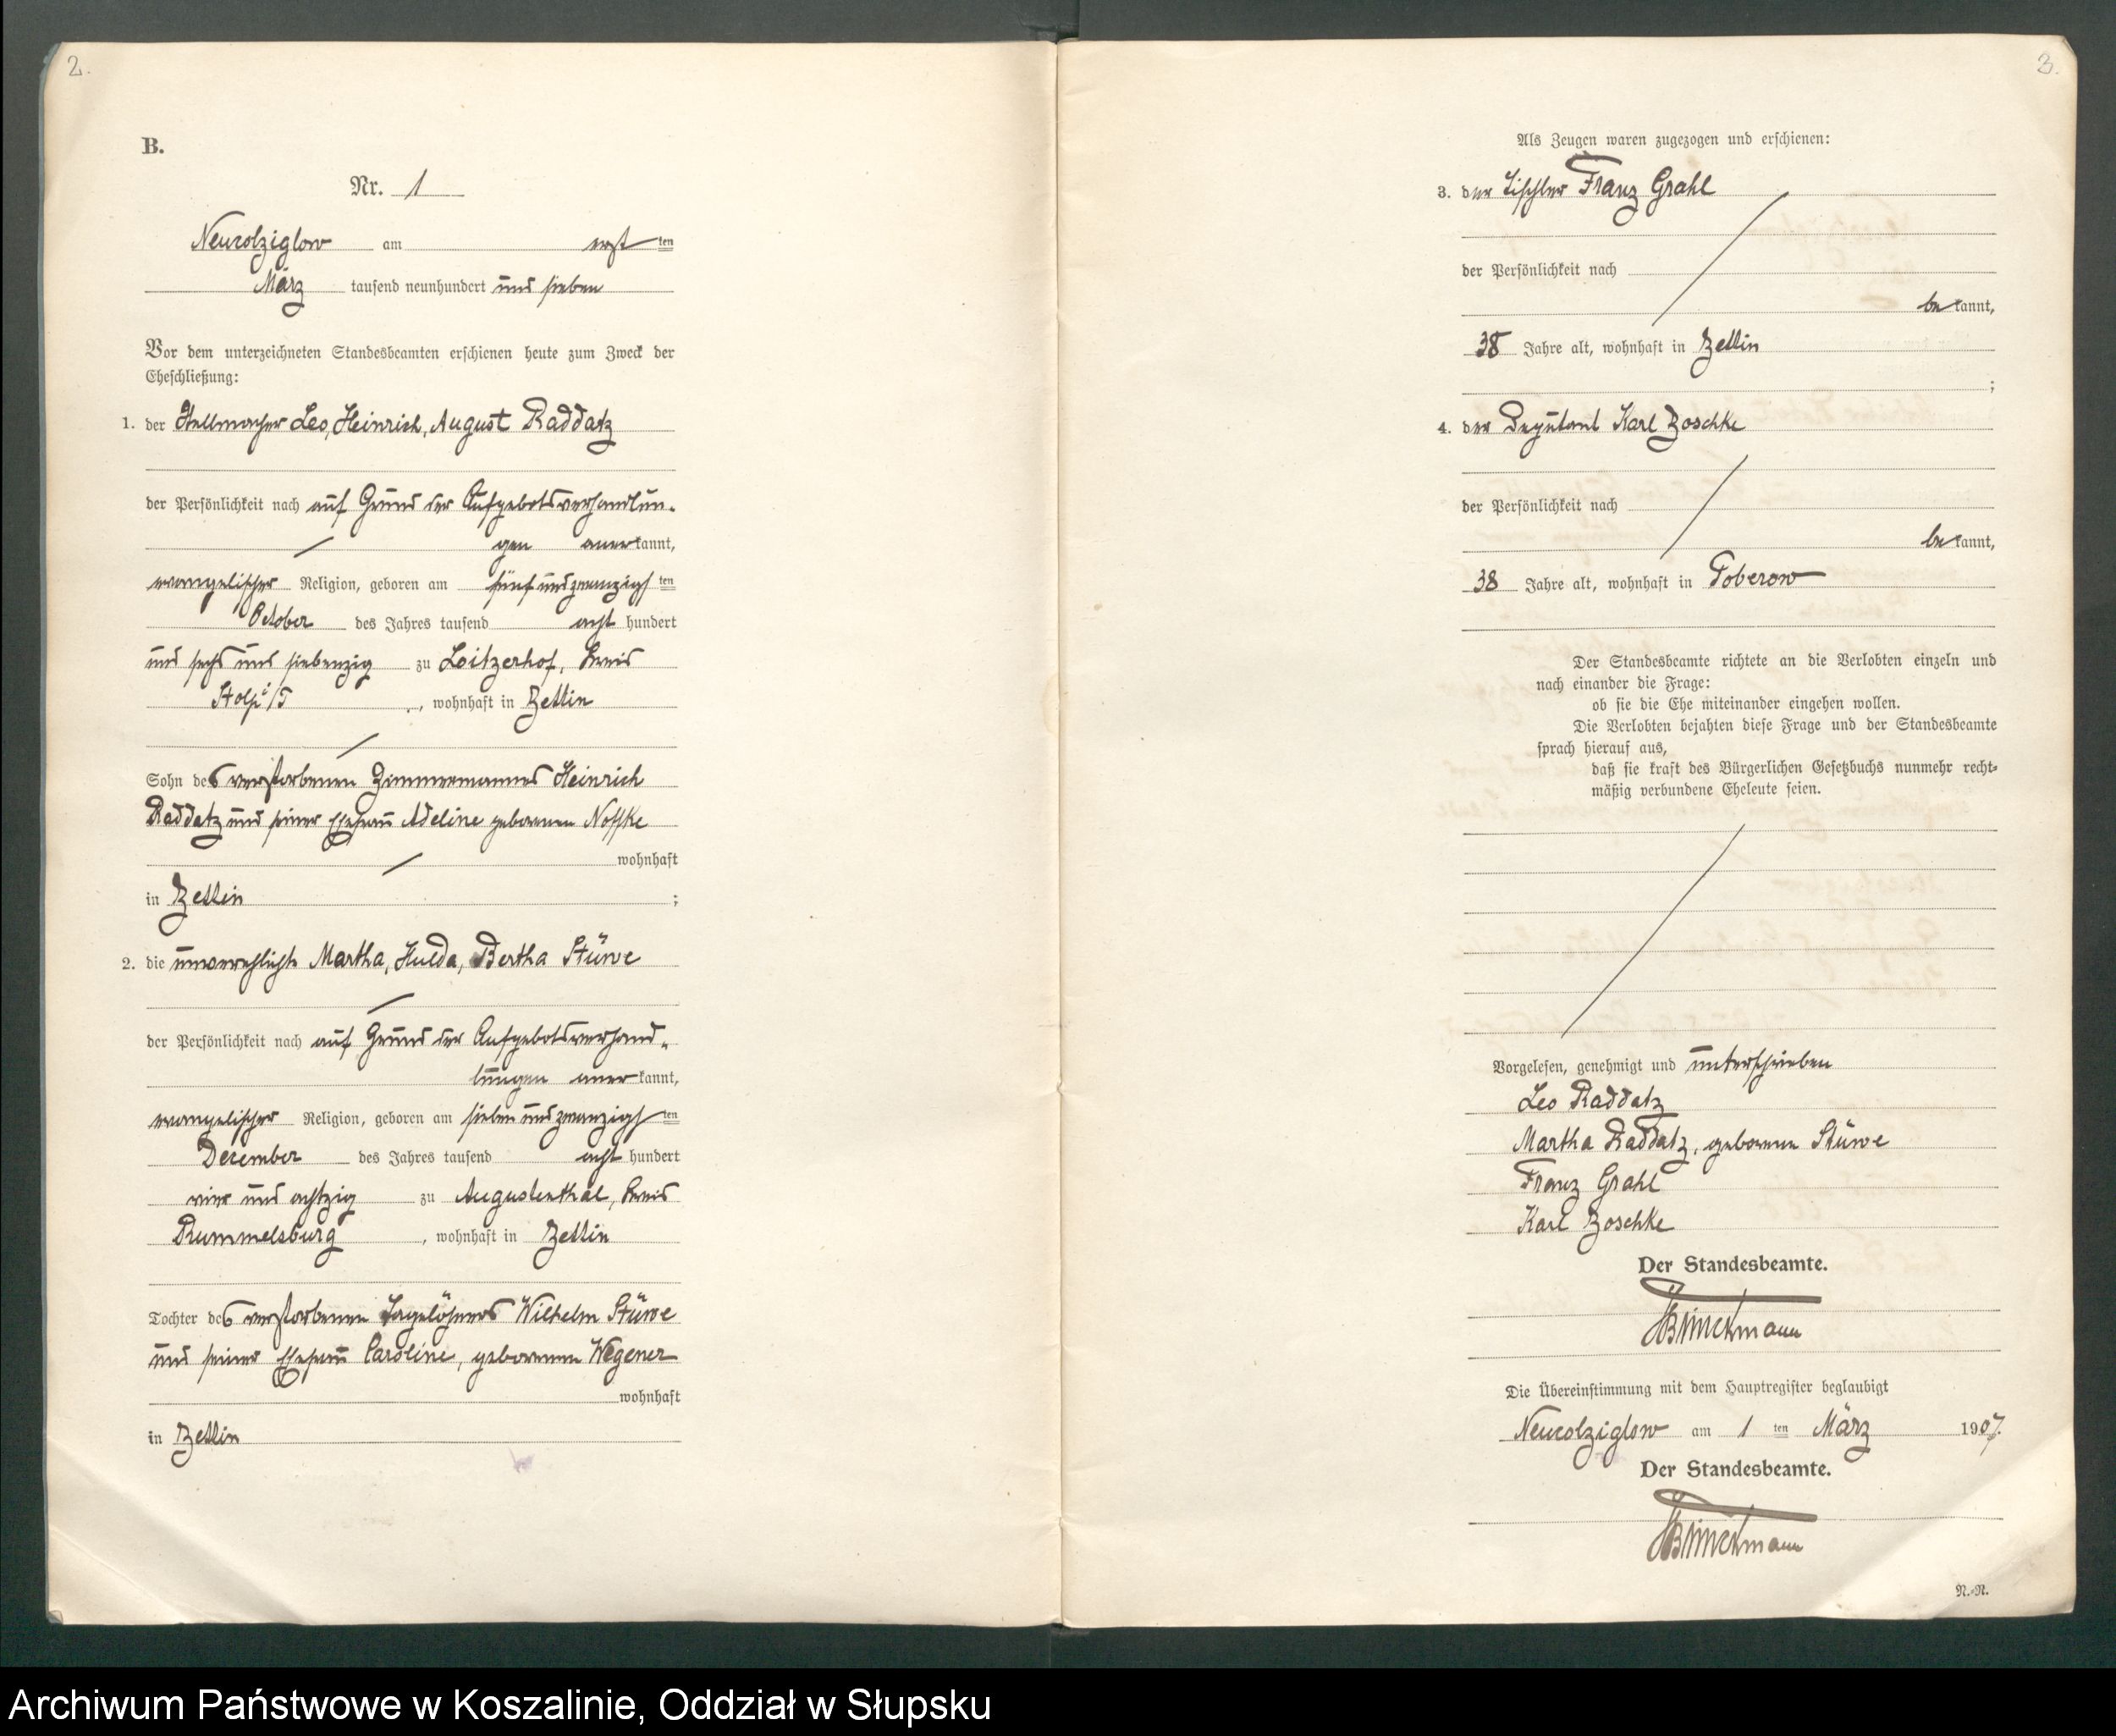 2.
B.
Nr. 1
Neucolziglow am erst ten
März tausend neunhundert und sieben
Vor dem unterzeichneten Standesbeamten erschienen heute zum Zweck der
Eheschließung:
1. der Stellmacher Leo, Heinrich, August Raddatz
der Persönlichkeit nach auf Grund der Aufgebotsverhandlun-
gen anerkannt,
evangelischer Religion, geboren am fünfundzwanzigsten
October des Jahres tausend acht hundert
und sechs und siebenzig zu Loitzerhof, Kreis
Stolp i/P, wohnhaft in Zettin
Sohn des verstorbenen Zimmermannes Heinrich
Raddatz und seiner Ehefrau Adeline geborenen Noffke
wohnhaft
in Zettin ;
2. die unverehelichte Martha, Hulda, Bertha Stüwe
der Persönlichkeit nach auf Grund der Aufgebotsverhand-
lungen anerkannt,
evangelischer Religion, geboren am siebenundzwanzigsten
Dezember des Jahres tausend acht hundert
vier und achtzig zu Augustenthal, Kreis
Rummelsburg, wohnhaft in Zettin
Tochter des verstorbenen Tagelöhners Wilhelm Stüwe
und seiner Ehefrau Caroline, geborenen Wegener
wohnhaft
in Zettin
3.
Als Zeugen waren zugezogen und erschienen:
3. der Tischler Franz Grahl
der Persönlichkeit nach
bekannt,
38 Jahre alt, wohnhaft in Zettin
;
4. der Deputant Karl Zoschke
der Persönlichkeit nach
bekannt,
38 Jahre alt, wohnhaft in Poberow
Der Standesbeamte richtete an die Verlobten einzeln und
nach einander die Frage:
ob sie die Ehe miteinander eingehen wollen.
Die Verlobten bejahten diese Frage und der Standesbeamte
sprach hierauf aus,
daß sie kraft des Bürgerlichen Gesetzbuchs nunmehr recht-
mäßig verbundene Eheleute seien.
Vorgelesen, genehmigt und unterschrieben
Leo Raddatz
Martha Raddatz, geborene Stüwe
Franz Grahl
Karl Zoschke
Der Standesbeamte.
Die Übereinstimmung mit dem Hauptregister beglaubigt
Neucolziglow am 1 ten März 1907.
Der Standesbeamte.
N.-N.
Archiwum Państwowe w Koszalinie, Oddział w Słupsku